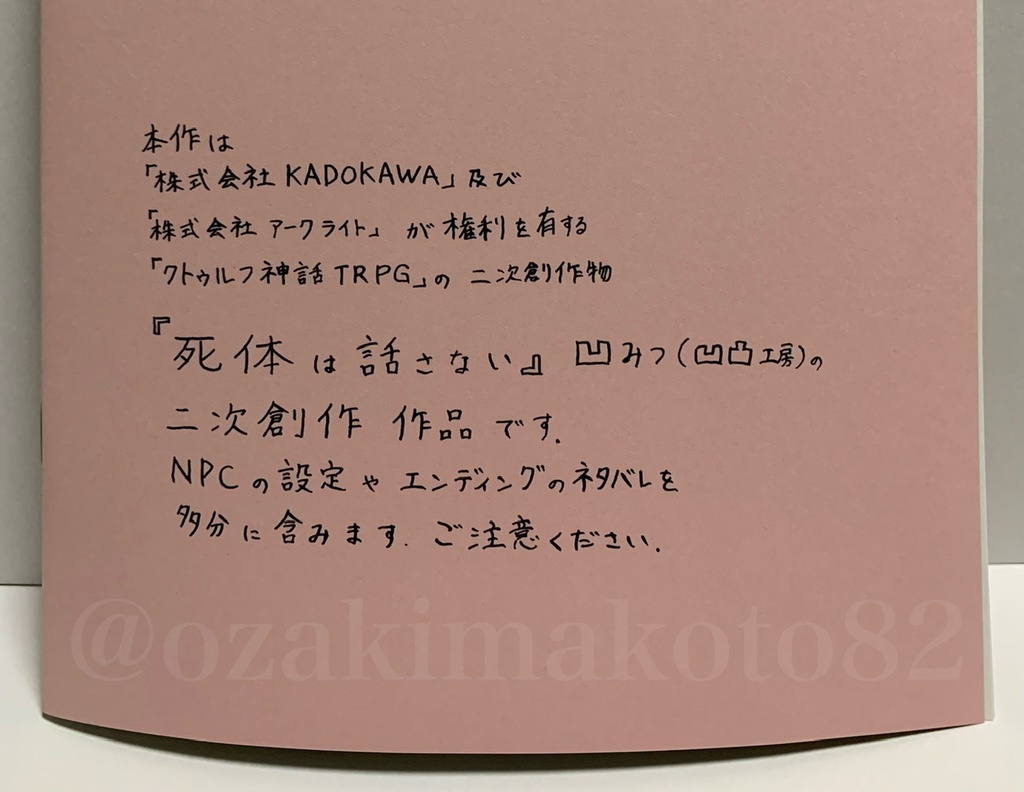 本作は
「株式会社 KADOKAWA」及び
「株式会社 アークライト」 が 権利を有する
「クトゥルフ神話TRPG」の 二次創作物
『死体は話さない』 凹みつ(凹凸工房)の
二次創作 作品です.
NPCの設定や エンディングのネタバレを
多分に含みます. ご注意ください.
@ozakimakoto82